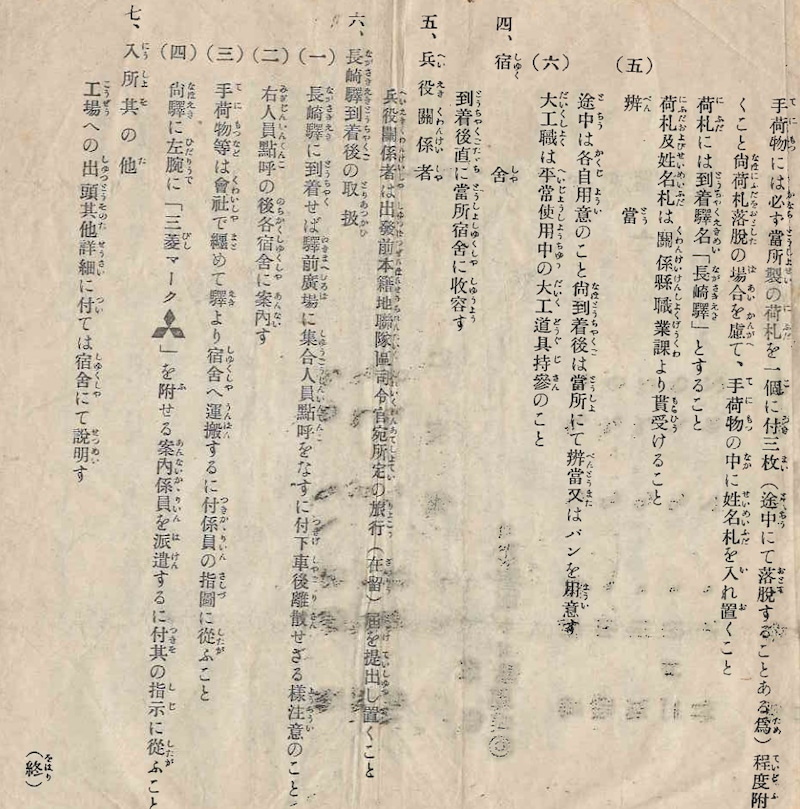 手荷物には必ず當所製の荷札を一個に付三枚（途中にて落脱することある爲）程度附
くこと尙荷札落脱の場合を慮て、手荷物の中に姓名札を入れ置くこと
荷札には到着驛名「長崎驛」とすること
荷札及姓名札は關係縣職業課より貰受けること
（五）辨當
途中は各自用意のこと尙到着後は當所にて辨當又はパンを用意す
（六）大工職は平常使用中の大工道具持參のこと
四、宿舍
到着後直に當所宿舍に收容す
五、兵役關係者
兵役關係者は出發前本籍地聯隊區司令官宛所定の旅行（在留）屆を提出し置くこと
六、長崎驛到着後の取扱
（一）長崎驛に到着せば驛前廣場に集合人員點呼をなすに付下車後離散せざる樣注意のこと
（二）右人員點呼の後各宿舍に案內す
（三）手荷物等は會社で纒めて驛より宿舍へ運搬するに付係員の指圖に從ふこと
（四）尙驛に左腕に「三菱マーク」を附せる案內係員を派遣するに付其の指示に從ふこと
七、入所其の他
工場への出頭其他詳細に付ては宿舍にて說明す
（終）